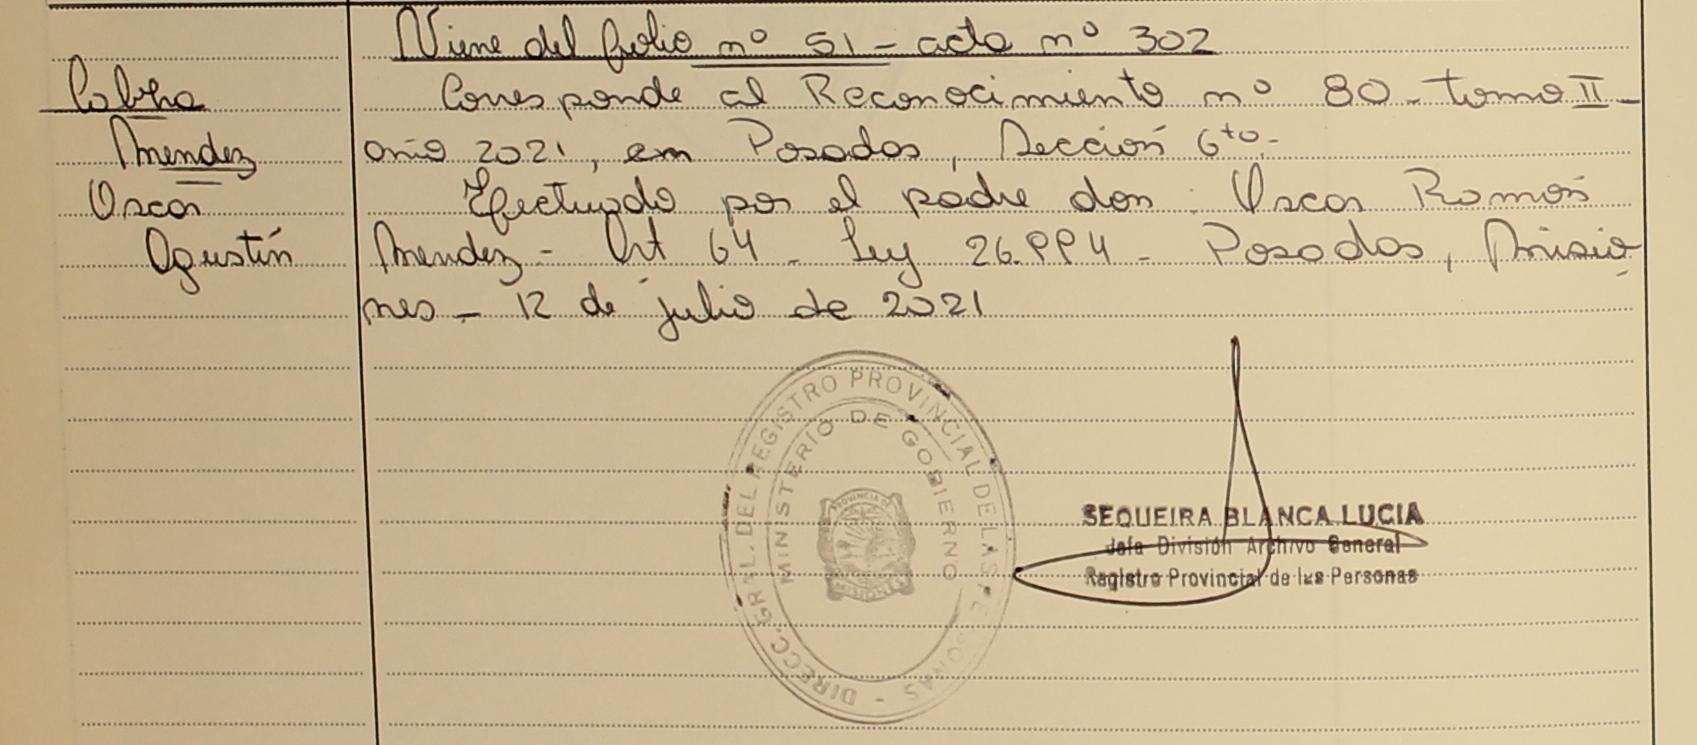 Viene del folio nº 51 - acta nº 302
Corresponde al Reconocimiento nº 80 - tomo II -
Mendez
año 2021, en Posadas, Sección 6ta.-
Oscar
Efectuado por el padre don: Oscar Ramón
Agustín
Mendez - Art 64 - Ley 26.994 - Posadas, Misio
nes - 12 de julio de 2021
DIRECC. GRAL. DEL REGISTRO PROVINCIAL DE LAS PERSONAS -
MINISTERIO DE GOBIERNO
PROVINCIA DE
MISIONES
SEQUEIRA BLANCA LUCIA
Jefa División Archivo General
Registro Provincial de las Personas